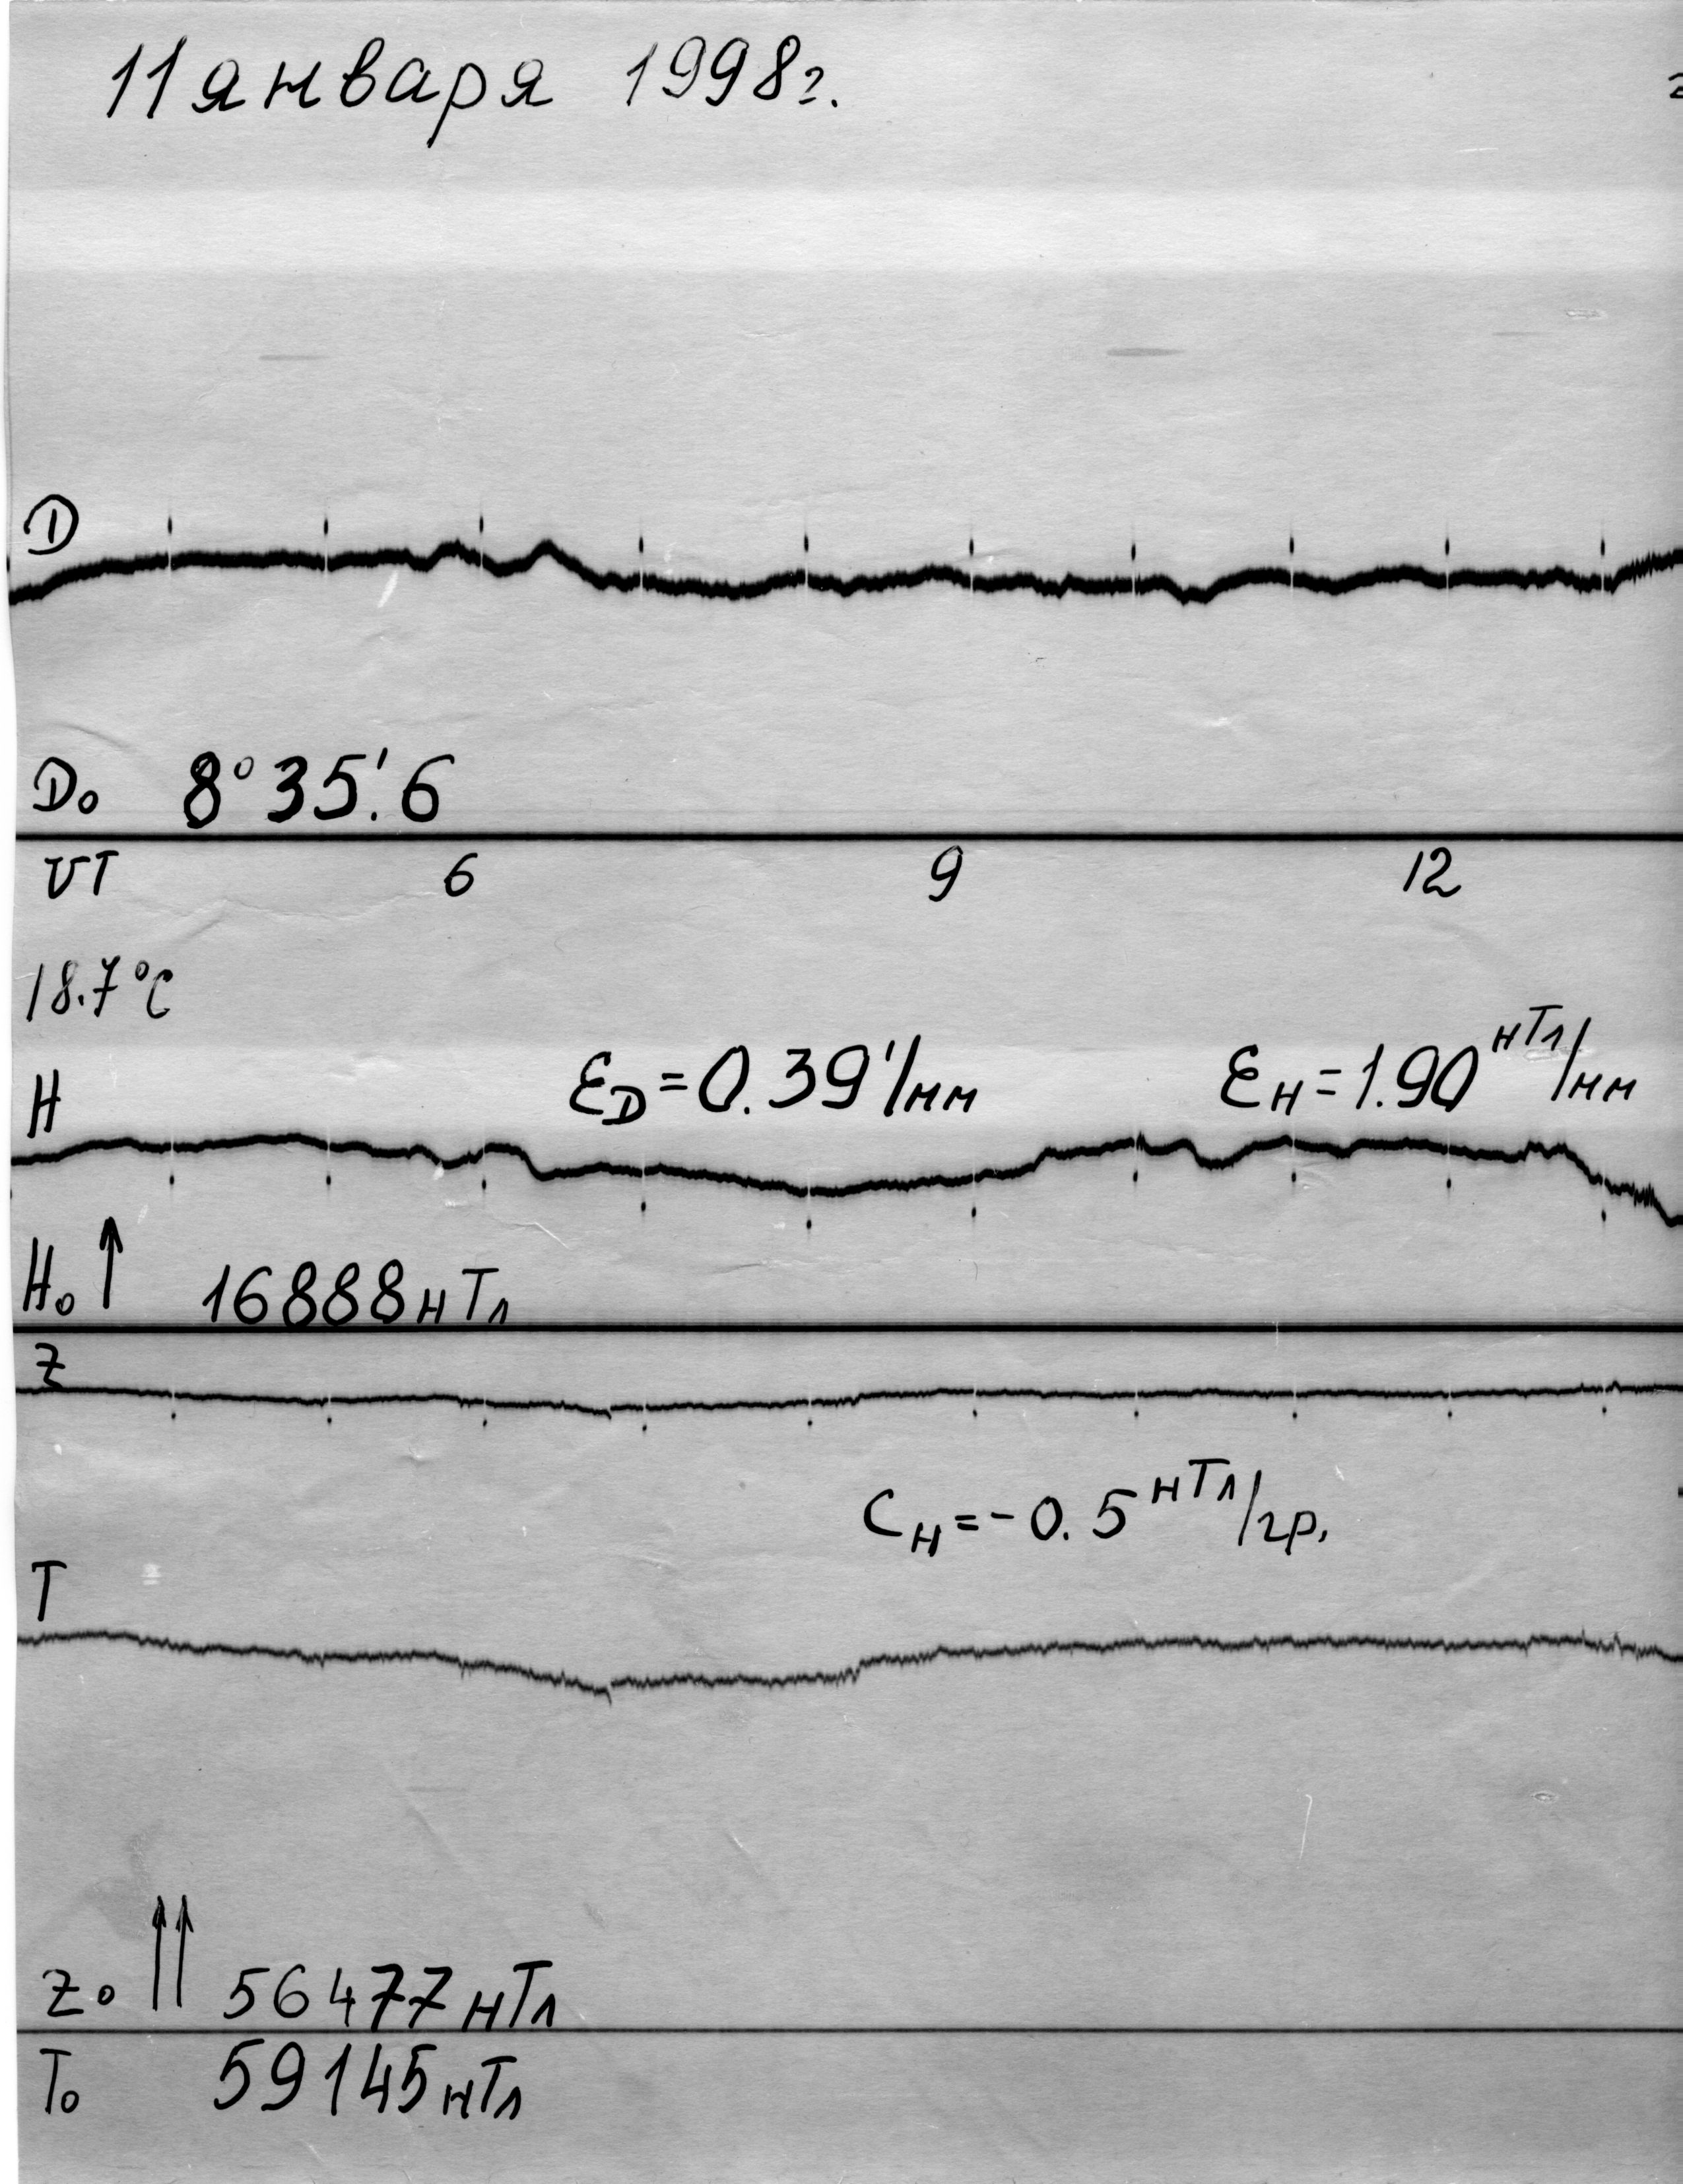 11 января 1998г.
D
D₀ 8°35!6
UT 6 9 12
18.7°C
H ℰD=0.39'/мм ℰH=1.90 нТл/мм
H₀ ↑ 16888 нТл
Z
CH=-0.5 нТл/гр.
T
Z₀ ↑↑ 56477 нТл
T₀ 59145 нТл